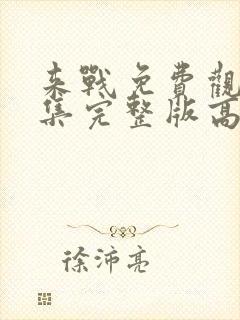 来戰免費觀
集完整版高
徐沛亮